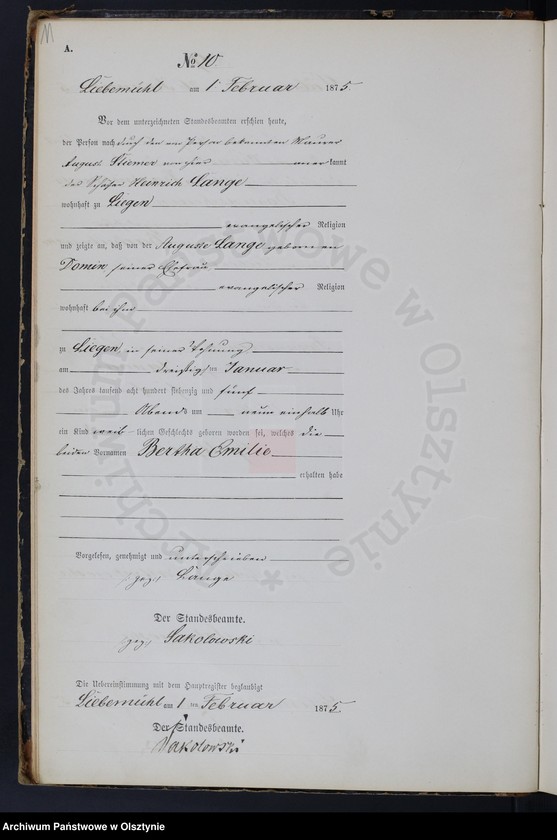 11
A.
№ 10
Liebemühl am 1 Februar 1875.
Vor dem unterzeichneten Standesbeamten erschien heute,
der Person nach durch den von Person bekannten Maurer
August Stiemer aner kannt
der Heinrich Lange
wohnhaft zu Liegen
evangelischer Religion
und zeigte an, daß von der Auguste Lange geborenen
Domin seiner Ehefrau
evangelischer Religion
wohnhaft bei ihm
zu Liegen in seiner Wohnung
am dreißigsten Januar
des Jahres tausend acht hundert siebenzig und fünf
Abends um neun einhalb Uhr
ein Kind weib lichen Geschlechts geboren worden sei, welches die
beiden Vornamen Bertha Emilie
erhalten habe
Vorgelesen, genehmigt und unterschrieben
gez. Lange
Der Standesbeamte.
gez. Sakolowski
Die Uebereinstimmung mit dem Hauptregister beglaubigt
Liebemühl am 1 ten Februar 1875.
Der Standesbeamte.
Sakolowski
* Archiwum Państwowe w Olsztynie
Archiwum Państwowe w Olsztynie